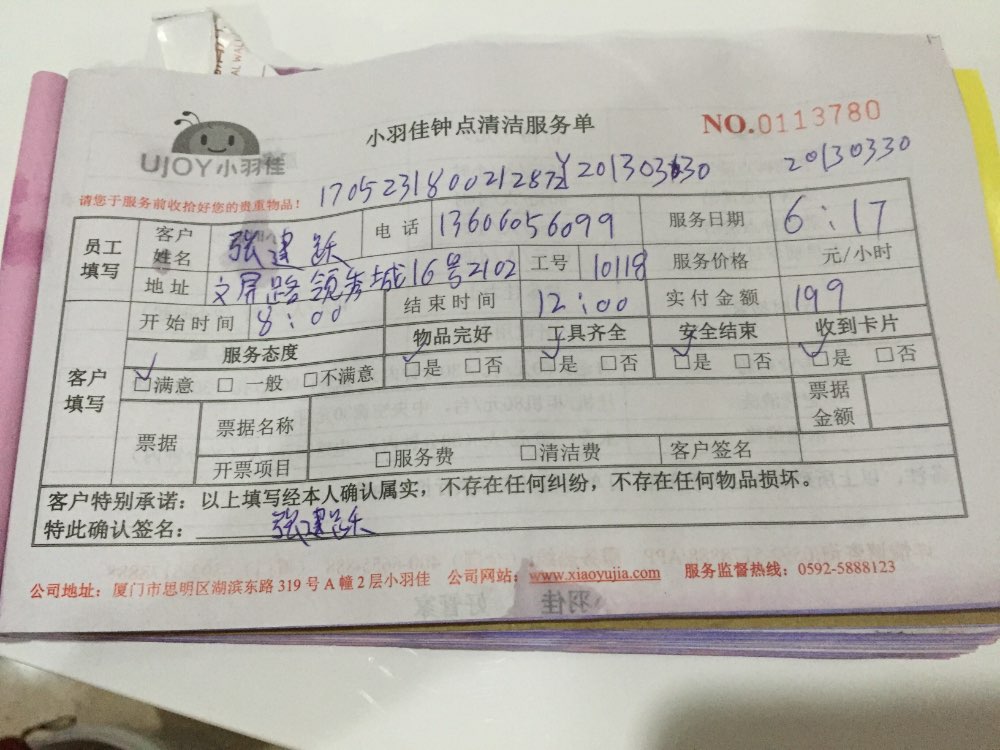 小羽佳钟点清洁服务单
NO.0113780
UJOY小羽佳
请您于服务前收拾好您的贵重物品！
20130330
员工填写 客户姓名 张建跃 电话 13606056099 服务日期 6:17
地址 文屏路领秀城16号2102 工号 10118 服务价格 元/小时
开始时间 8:00 结束时间 12:00 实付金额 199
客户填写 服务态度 物品完好 工具齐全 安全结束 收到卡片
□满意 □一般 □不满意 □是 □否 □是 □否 □是 □否 □是 □否
票据 票据名称 票据金额
开票项目 □服务费 □清洁费 客户签名
客户特别承诺：以上填写经本人确认属实，不存在任何纠纷，不存在任何物品损坏。
特此确认签名： 张建跃
公司地址：厦门市思明区湖滨东路319号A幢2层小羽佳 公司网站：www.xiaoyujia.com 服务监督热线：0592-5888123